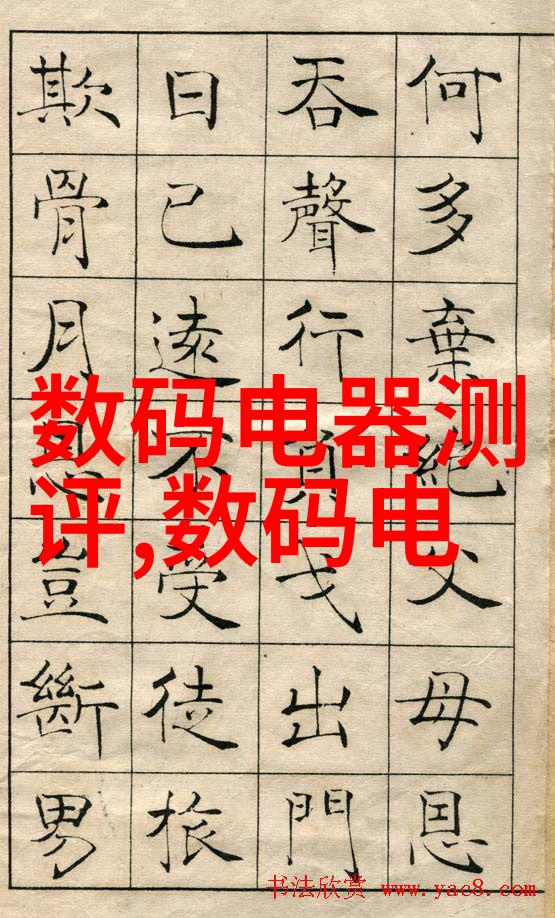 何多棄絕父母恩
吞聲行負戈出門
日已遠不受徒旅
欺骨月恩豈斷男
数码电器测
评,数码电
书法欣赏 www.yac8.com